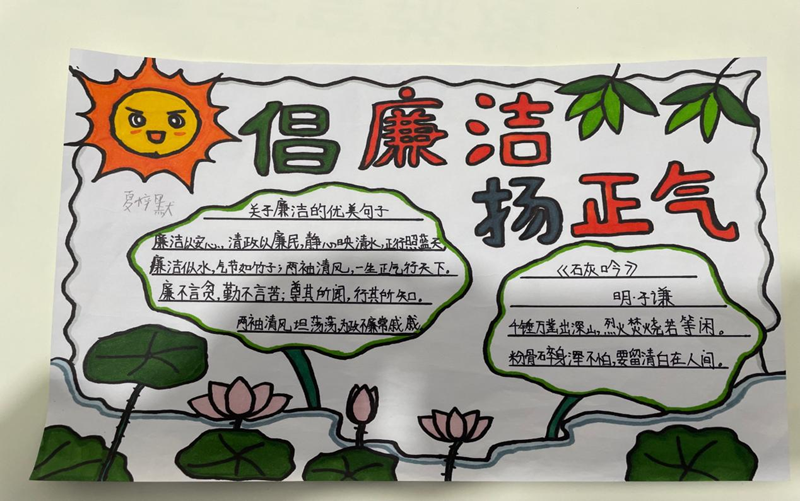 倡廉洁
扬正气
关于廉洁的优美句子
廉洁以安心,清政以廉民,静心映清水,正行照蓝天
廉洁似水,气节如竹子;两袖清风,一生正气行天下.
廉不言贪,勤不言苦;尊其所闻,行其所知.
两袖清风,坦荡荡,为政不廉常戚戚
《石灰吟》
明·于谦
千锤万凿出深山,烈火焚烧若等闲。
粉骨碎身浑不怕,要留清白在人间。